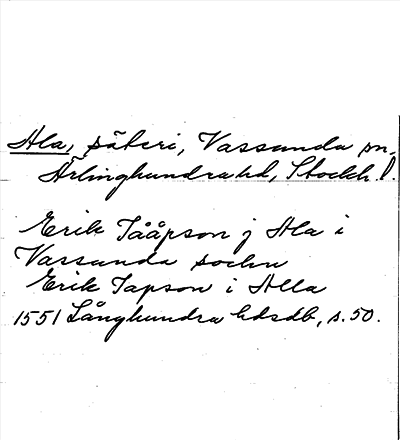 Ala, säteri, Vassunda sn.
Ärlinghundra hd, Stockh. l.
Erik Tååpson j Ala i
Vassunda sochn
Erik Tapson i Alla
1551 Långhundra hdsdb, s. 50.